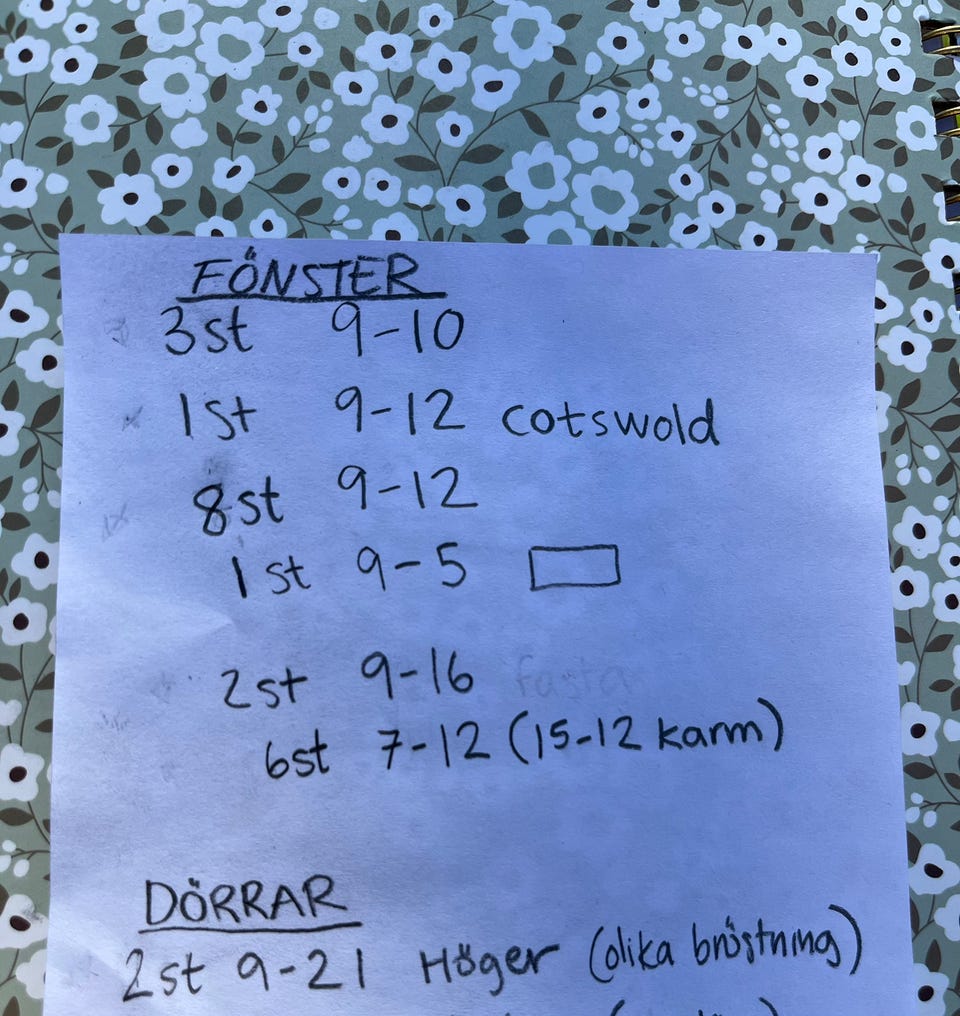 FÖNSTER
3st 9-10
1st 9-12 cotswold
8st 9-12
1st 9-5
2st 9-16 fasta
6st 7-12 (15-12 karm)
DÖRRAR
2st 9-21 Höger (olika bröstning)